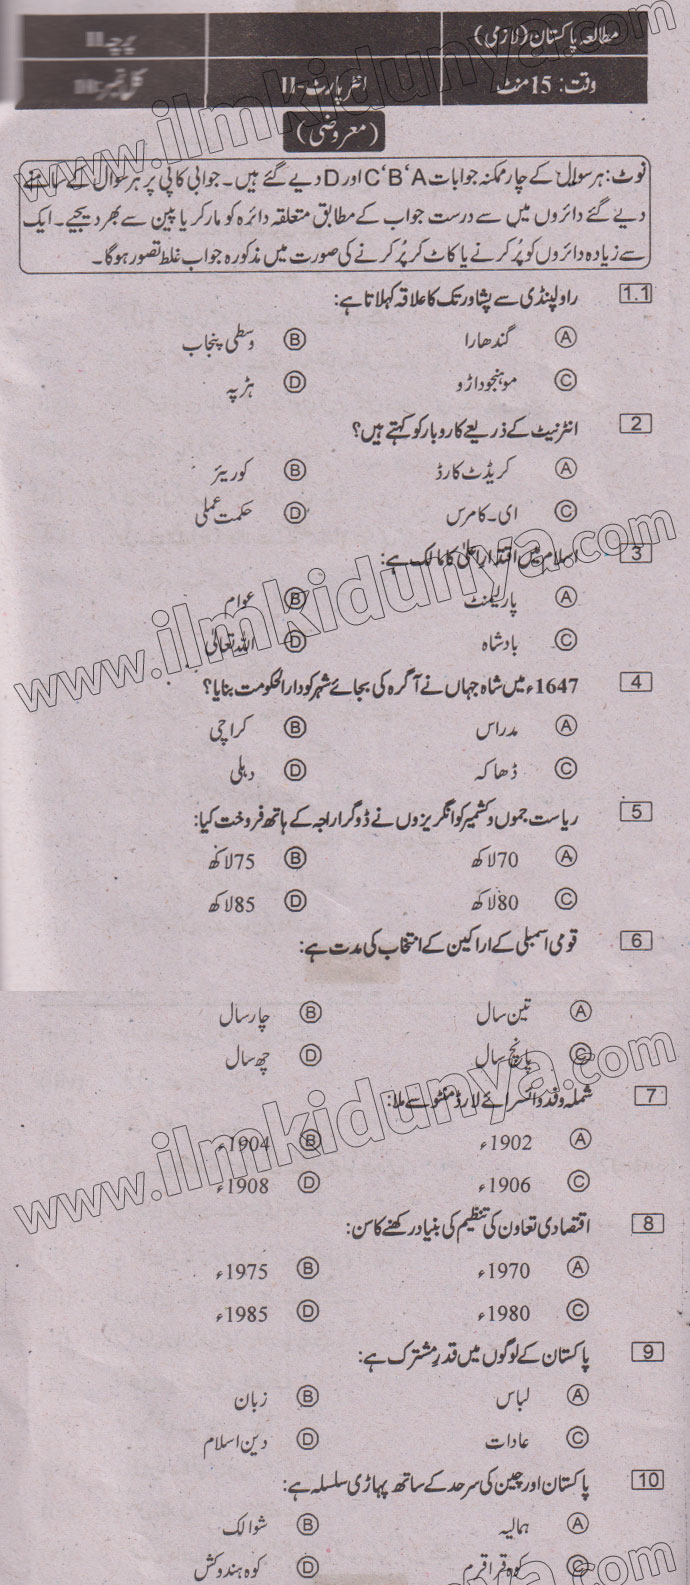 مطالعہ پاکستان (لازمی) پرچہ II
وقت: 15 منٹ انٹر پارٹ-II کل نمبر: 10
(معروضی)
نوٹ: ہر سوال کے چار ممکنہ جوابات A‘ B‘ C اور D دیے گئے ہیں۔ جوابی کاپی پر ہر سوال کے سامنے
دیے گئے دائروں میں سے درست جواب کے مطابق متعلقہ دائرہ کو مارکر یا پین سے بھر دیجیے۔ ایک
سے زیادہ دائروں کو پُر کرنے یا کاٹ کر پُر کرنے کی صورت میں مذکورہ جواب غلط تصور ہوگا۔
1.1 راولپنڈی سے پشاور تک کا علاقہ کہلاتا ہے:
A گندھارا B وسطی پنجاب
C موہنجوداڑو D ہڑپہ
2 انٹرنیٹ کے ذریعے کاروبار کو کہتے ہیں؟
A کریڈٹ کارڈ B کوریئر
C ای۔کامرس D حکمت عملی
3 اسلام میں اقتدارِ اعلیٰ کا مالک ہے:
A پارلیمنٹ B عوام
C بادشاہ D اللہ تعالیٰ
4 1647ء میں شاہ جہاں نے آگرہ کی بجائے شہر کو دارالحکومت بنایا؟
A مدراس B کراچی
C ڈھاکہ D دہلی
5 ریاست جموں و کشمیر کو انگریزوں نے ڈوگرا راجہ کے ہاتھ فروخت کیا:
A 70 لاکھ B 75 لاکھ
C 80 لاکھ D 85 لاکھ
6 قومی اسمبلی کے اراکین کے انتخاب کی مدت ہے:
A تین سال B چار سال
C پانچ سال D چھ سال
7 شملہ وفد وائسرائے لارڈ منٹو سے ملا:
A 1902ء B 1904ء
C 1906ء D 1908ء
8 اقتصادی تعاون کی تنظیم کی بنیاد رکھنے کا سن:
A 1970ء B 1975ء
C 1980ء D 1985ء
9 پاکستان کے لوگوں میں قدرِ مشترک ہے:
A لباس B زبان
C عادات D دین اسلام
10 پاکستان اور چین کی سرحد کے ساتھ پہاڑی سلسلہ ہے:
A ہمالیہ B شوالک
C کوہ قراقرم D کوہ ہندوکش
www.ilmkidunya.com
www.ilmkidunya.com
www.ilmkidunya.com
www.ilmkidunya.com